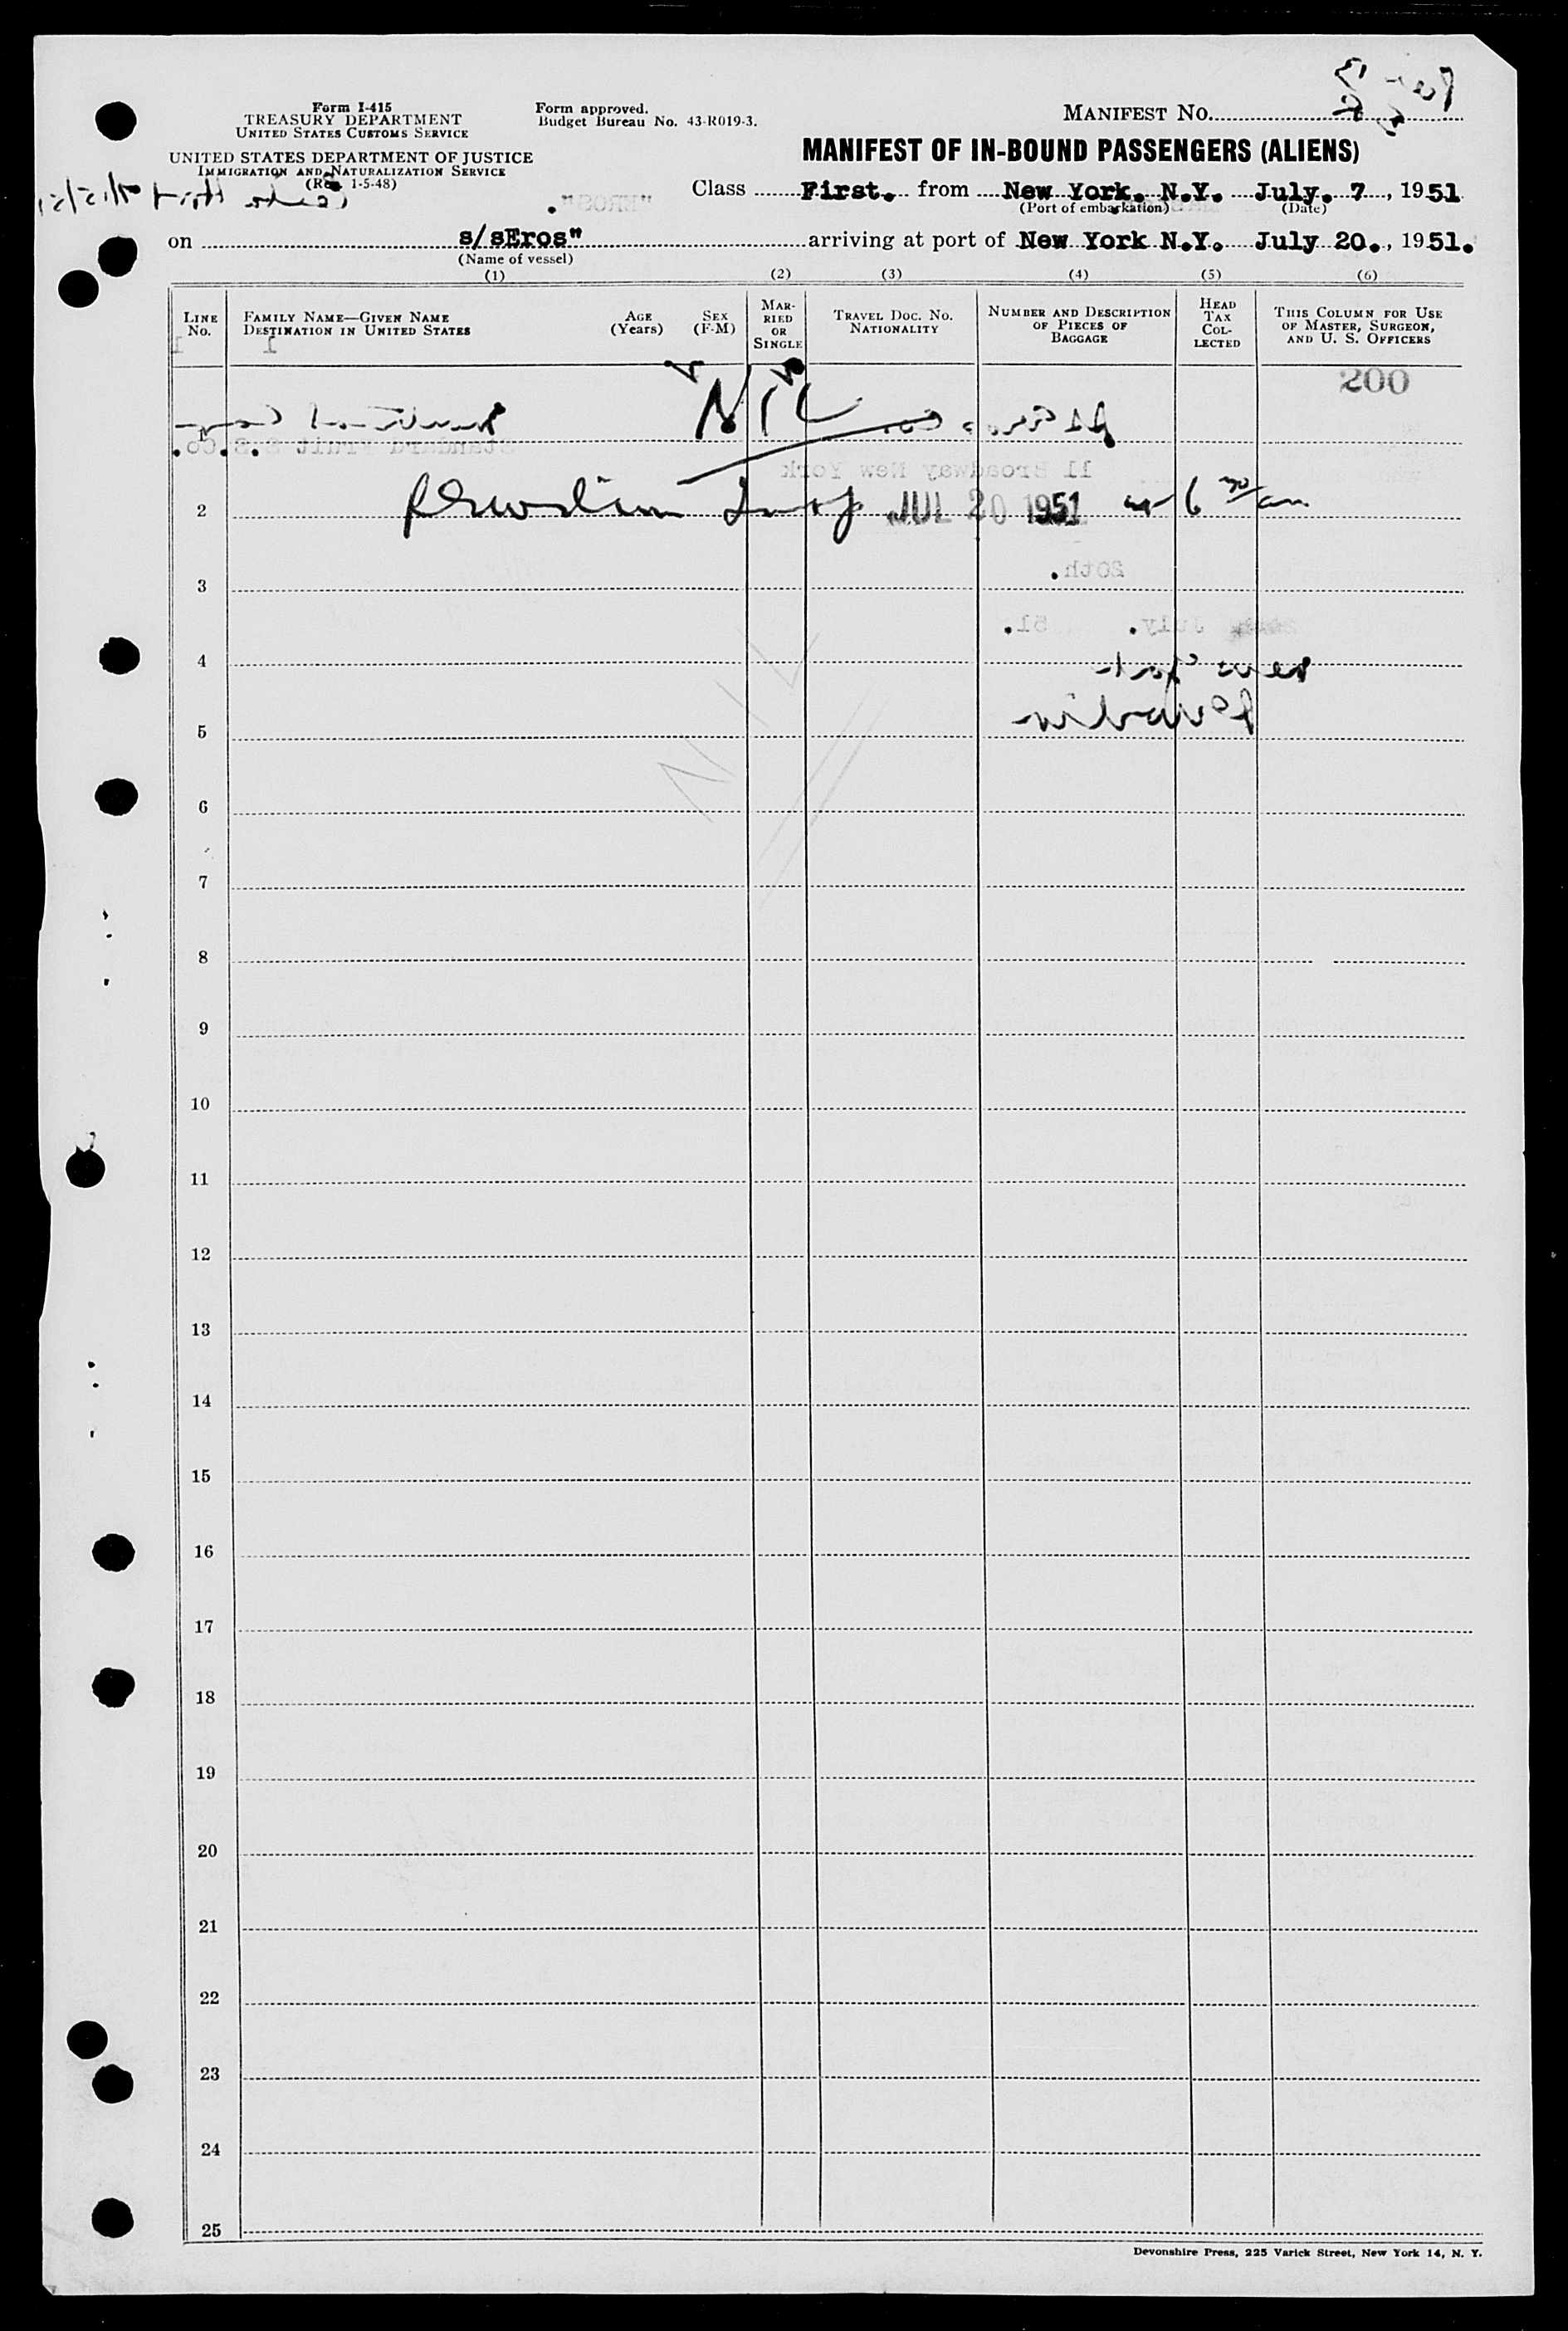 Form I-415
TREASURY DEPARTMENT
UNITED STATES CUSTOMS SERVICE
UNITED STATES DEPARTMENT OF JUSTICE
IMMIGRATION AND NATURALIZATION SERVICE
(Rev. 1-5-48)
Form approved.
Budget Bureau No. 43-R019-3.
MANIFEST NO.
MANIFEST OF IN-BOUND PASSENGERS (ALIENS)
Class First. from New York. N.Y. July. 7, 1951
(Port of embarkation) (Date)
on s/sEros" arriving at port of New York N.Y. July 20., 1951.
(Name of vessel)
(1) (2) (3) (4) (5) (6)
LINE No. FAMILY NAME—GIVEN NAME DESTINATION IN UNITED STATES AGE (Years) SEX (F-M) MARRIED OR SINGLE TRAVEL DOC. NO. NATIONALITY NUMBER AND DESCRIPTION OF PIECES OF BAGGAGE HEAD TAX COLLECTED THIS COLUMN FOR USE OF MASTER, SURGEON, AND U. S. OFFICERS
200
1 NIL
Standard Fruit S.S.Co.
11 Broadway New York
2 JUL 20 1951 at 6 30/am
20th.
3
July. 51.
4
New York
5
NIL
6
7
8
9
10
11
12
13
14
15
16
17
18
19
20
21
22
23
24
25
Devonshire Press, 225 Varick Street, New York 14, N. Y.